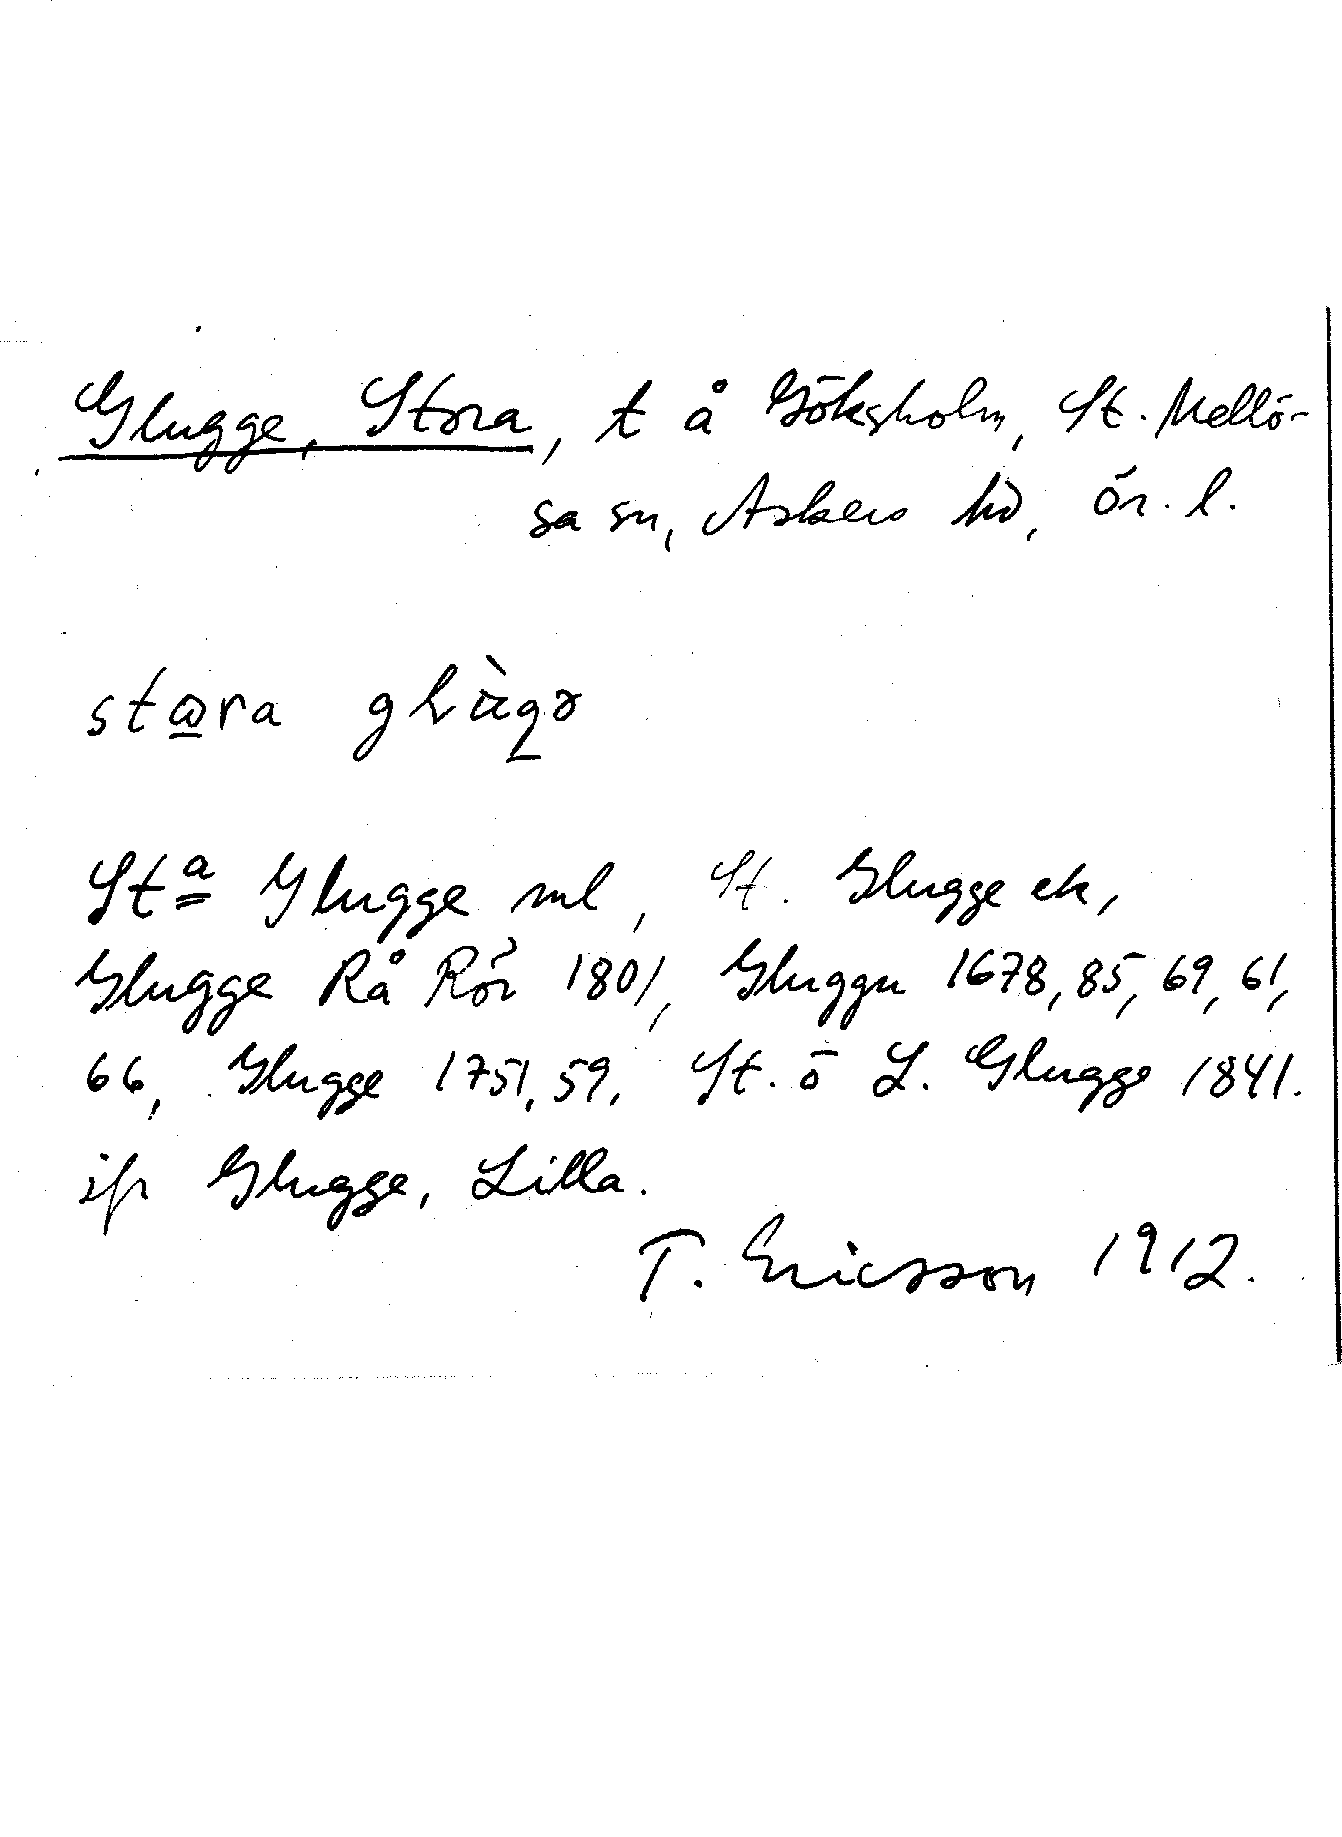 Glugge, Stora, t å Göksholm, St. Mellö-
sa sn, Askers hd, Ör. l.
Sta Glugge ml, St. Glugge ek,
Glugge Rå Rör 1801, Gluggu 1678, 85, 69, 61,
66, Glugge 1751, 59, St. ō L. Glugge 1841.
jfr Glugge, Lilla.
T. Ericsson 1912.